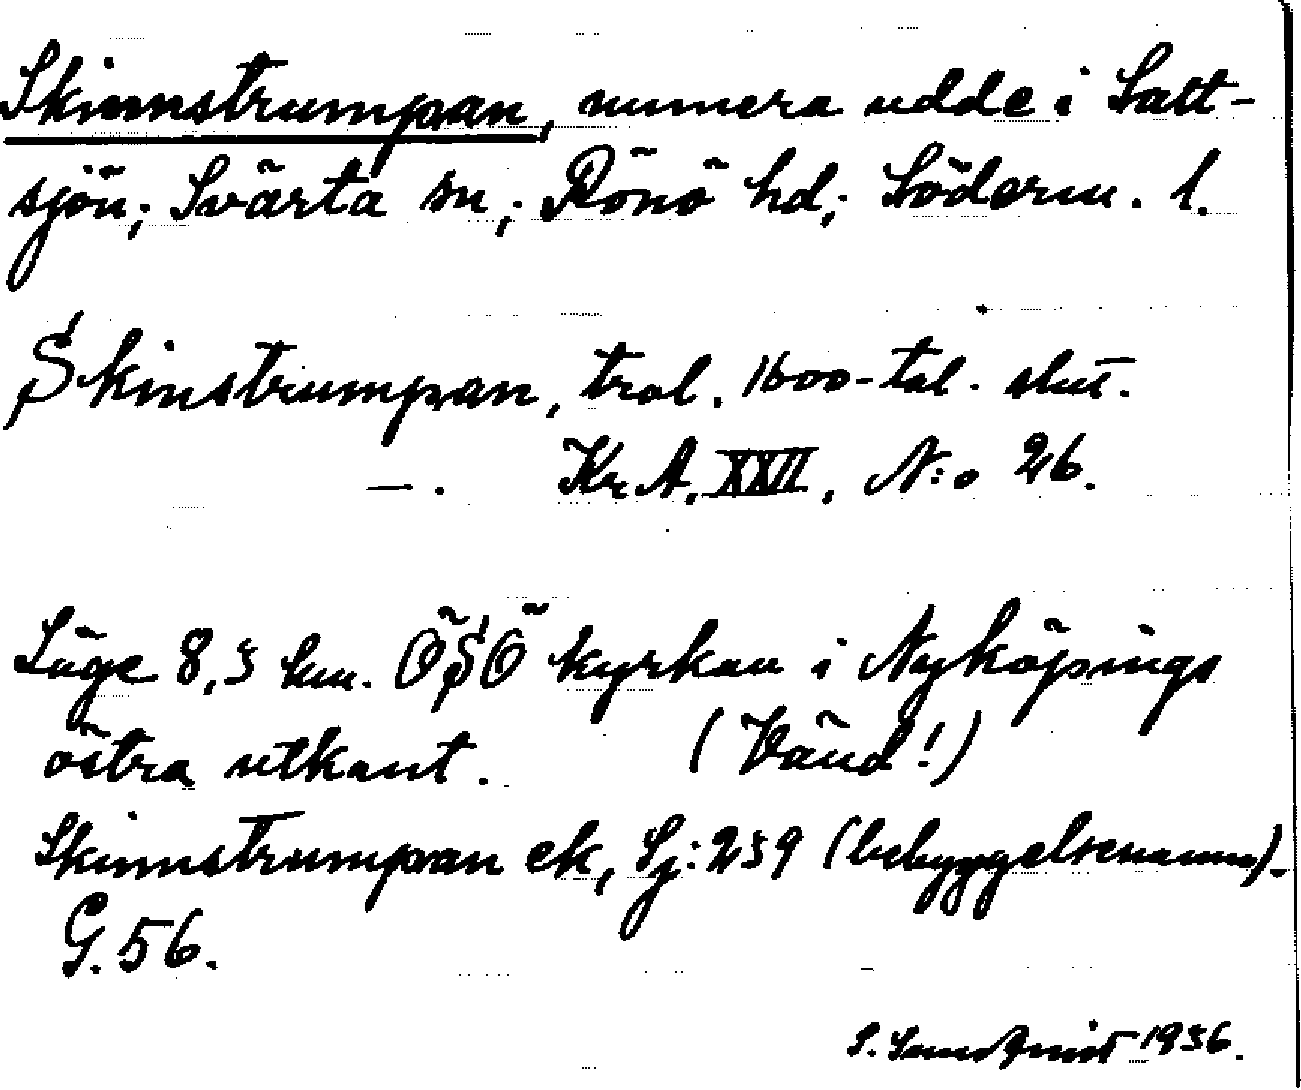 Skinnstrumpan, numera udde i Salt-
sjön; Svärta sn; Rönö hd; Söderm. l.
Skinstrumpan, trol. 1600-tal. slut.
—. Kr.A. XXVII, N:o 26.
Läge 8,3 km. ÖSÖ kyrkan i Nyköpings
östra utkant. (Vänd!)
Skinnstrumpan ek, Sj:239 (bebyggelsenamn).
G. 56.
S. 1936.